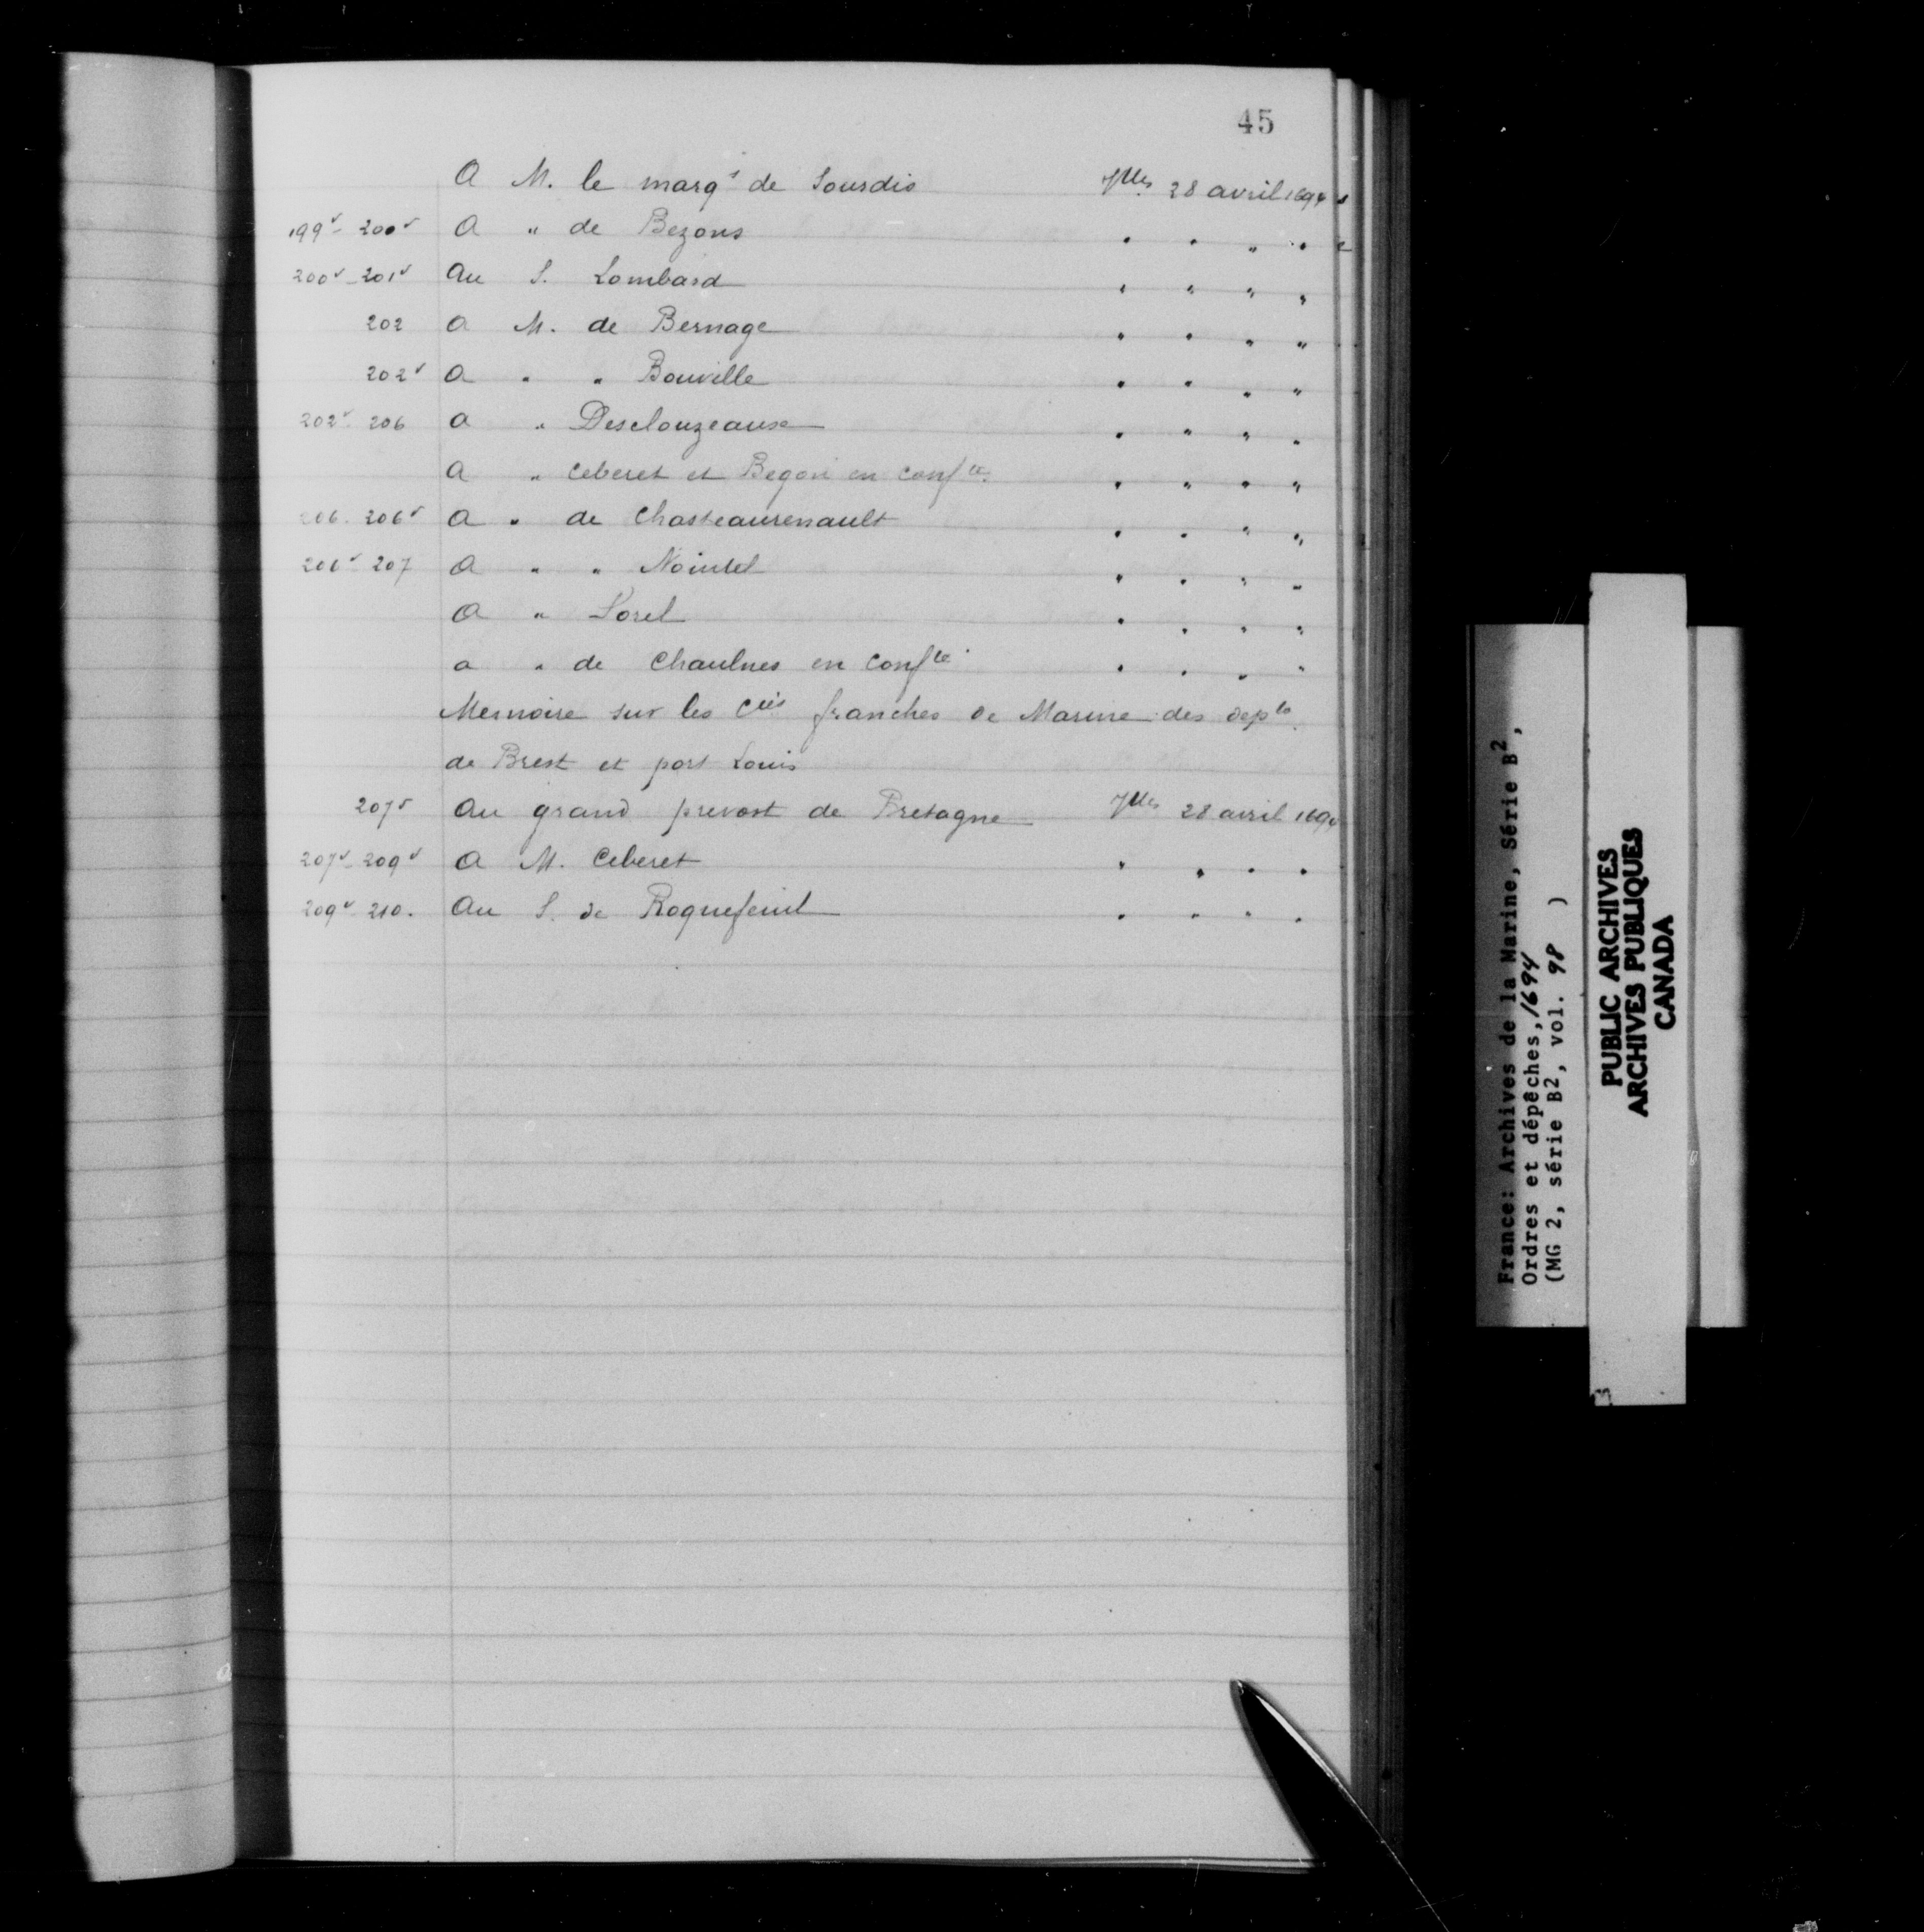 45
A M. le marq^s de Sourdis V^lles 28 avril 1694
199^v - 200^v A " de Bezons " " " "
200^v - 201^v Au S. Lombard " " " "
202 A M. de Bernage " " " "
202^v A " " Bouville " " " "
202^v - 206 A " Desclouzeaux " " " "
A " Ceberet et Begon en conf^ce " " " "
206 - 206^v A " de Chasteaurenault " " " "
206^v - 207 A " " Nointel " " " "
A " Sorel " " " "
a " de Chaulnes en conf^ce " " " "
Memoire sur les C^ies franches de Marine des dep^ts
de Brest et port Louis
207^v Au grand prevost de Bretagne V^lles 28 avril 1694
207^v - 209^v A M. Ceberet " " " "
209^v - 210. Au S. de Roquefeuil " " " "
France: Archives de la Marine, Série B²,
Ordres et dépêches, 1694
(MG 2, série B2, vol. 98 )
PUBLIC ARCHIVES
ARCHIVES PUBLIQUES
CANADA